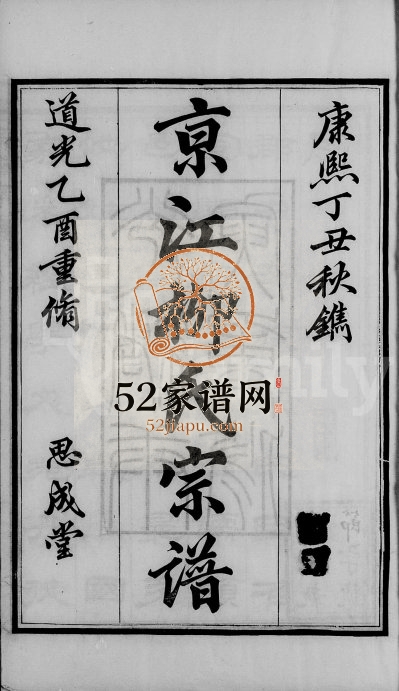 康熙丁丑秋鐫
京江柳氏宗譜
道光乙酉重脩
思成堂
52家谱网
52jiapu.com